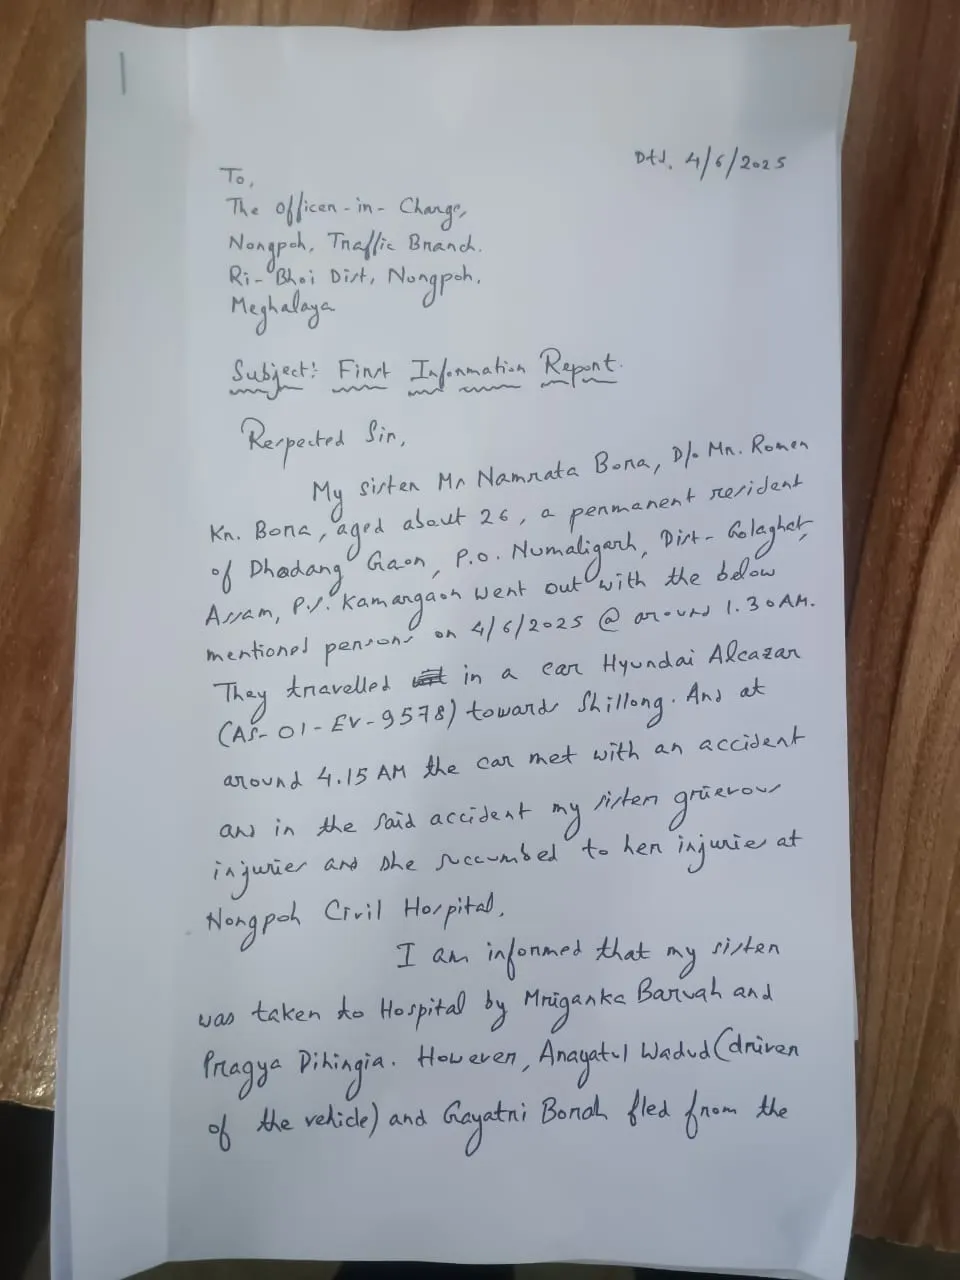 Dtd. 4/6/2025
To,
The Officer-in-Charge,
Nongpoh, Traffic Branch.
Ri-Bhoi Dist, Nongpoh,
Meghalaya
Subject: First Information Report.
Respected Sir,
My sister Ms Namrata Bora, D/o Mr. Romen
Kr. Bora, aged about 26, a permanent resident
of Dhodang Gaon, P.O. Numaligarh, Dist- Golaghat,
Assam, P.S. Kamargaon went out with the below
mentioned persons on 4/6/2025 @ around 1.30AM.
They travelled in a car Hyundai Alcazar
(AS-01-EV-9578) towards Shillong. And at
around 4.15 AM the car met with an accident
and in the said accident my sister grievous
injuries and she succumbed to her injuries at
Nongpoh Civil Hospital.
I am informed that my sister
was taken to Hospital by Mriganka Baruah and
Pragya Dihingia. However, Anayatul Wadud (driver
of the vehicle) and Gayatri Borah fled from the